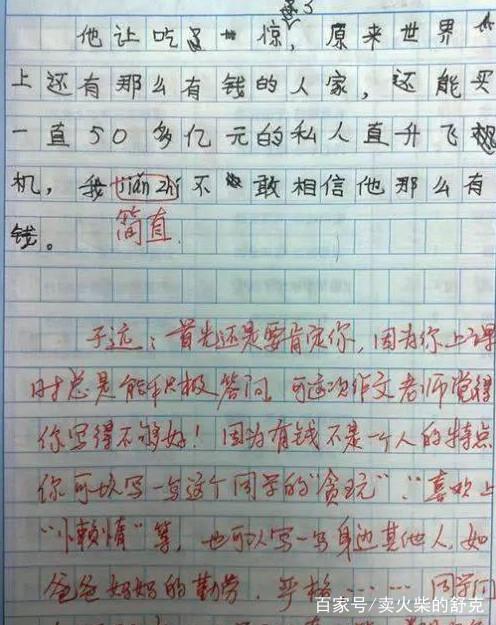 他让吃一惊，原来世界
上还有那么有钱的人家，还能买
一直50多亿元的私人直升飞
机，我jiǎn zhí不敢相信他那么有
钱。 简直
子远：首先还是要肯定你，因为你上课
时总是能积极答问，可这次作文老师觉得
你写得不够好！因为有钱不是一个人的特点
你可以写一写这个同学的“贪玩”：“喜欢上
“小赖情”等，也可以写一写身边其他人，如
爸爸妈妈的勤劳、严格……同学们
百家号/卖火柴的舒克